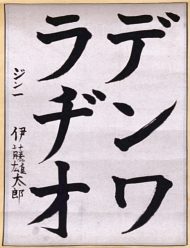 デンワ
ラヂオ
ジン一
伊藤雄太郎